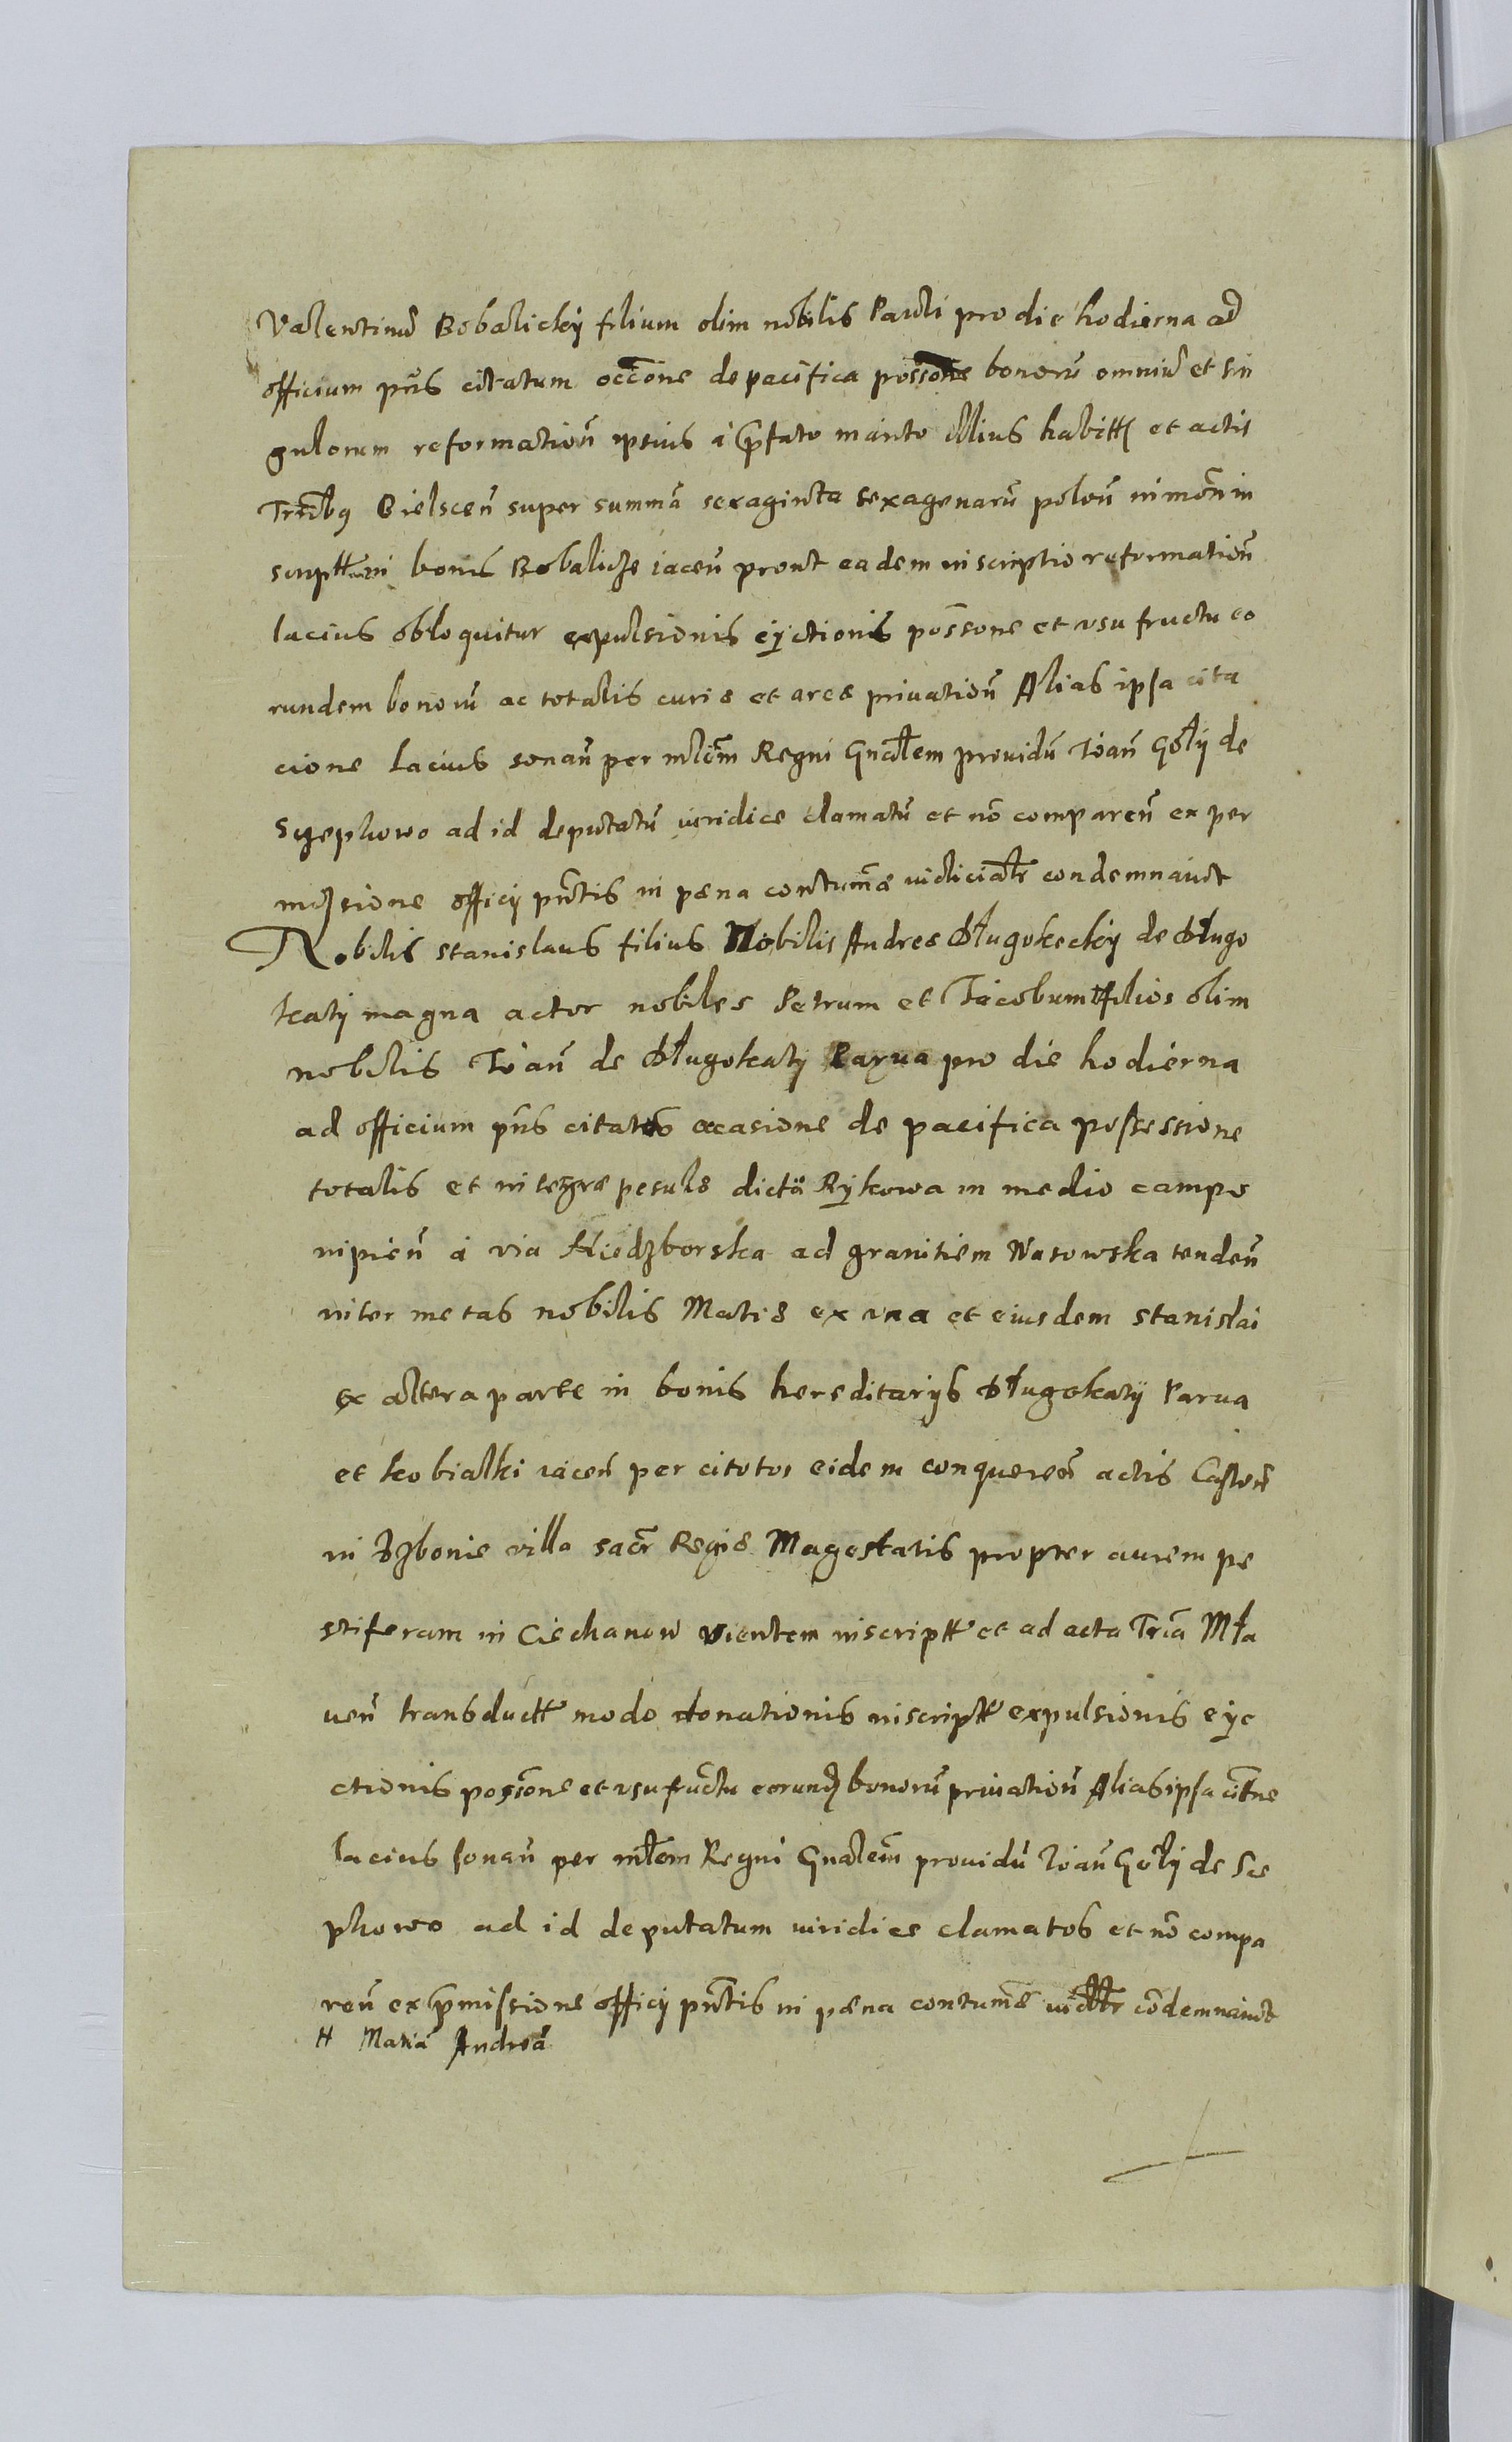 Valentinu Bobalickÿ filium olim nobilis Pauli pro die hodierna ad
officium pñs citatum occõne de pacifica possone bonorũ omniũ et sin
gulorum reformationẽ ipsius à p̃fato marito illius habitt et actis
Trribꝫ Bielscen̄ super summã sexaginta sexagenarũ polon̄ in mon̄ in
scriptt in bonis Bobalicze iacen̄ prout eadem inscriptio reformation̄
lacius obloquitur expulsionis eÿctionis possone et vsu fructu eo
rundem bonorũ ac totalis curiæ et areæ priuation̄ Alias ipsa cita
cione lacius sonan̄ per mlẽm Regni Gnãlem prouidũ Joan̄ Gołÿ de
Szepkowo ad id deputatũ iuridice clamatũ et nõ comparen̄ ex per
missione officÿ pñtis in pæna contumã iudicialr condemnauit
Nobilis Stanislaus filius Nobilis Andreæ Długokeckÿ de Długo
katÿ magna actor nobiles Petrum et Jacobum # filios olim
nobilis Joan̄ de Długokatÿ Parua pro die hodierna
ad officium pñs citatos occasione de pacifica possessione
totalis et integræ peculæ dictã Rÿkowa in medio campo
incipien̄ à via Niedzborska ad granitiem Wasowska tenden̄
inter metas nobilis Matiæ ex vna et eiusdem Stanislai
ex altera parte in bonis hereditarÿs Długokatÿ Parua
et kobialki iacen̄ per citatos eidem conqueren̄ actis Castren̄
in Dzbonie villa sacr̄ Regiæ Magestatis propter aurem pe
stiferam in Ciechanow vientem inscriptt et ad acta Trria Mła
uen̄ transductt modo donationis inscriptt expulsionis eÿe
ctionis possone et vsufructu eorundꝫ bonorũ priuation̄ Alias ipsa citne
lacius sonan̄ per mlẽm Regni Gnãlem prouidũ Joan̄ Gołÿ de Sce
pkowo ad id deputatum iuridice clamatos et nõ compa
ren̄ ex p̃missione officÿ pñtis in pæna contumã iudlr cõdemnauit
# Matiã Andreã